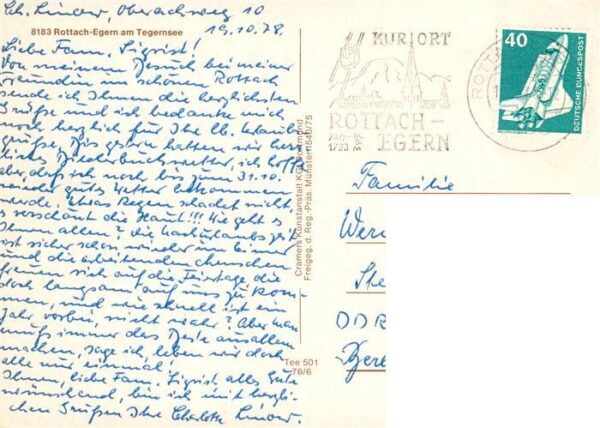 Ch. Linow, Oberachweg 10
19.10.78.
8183 Rottach-Egern am Tegernsee
Liebe Fam. Sigrist!
Von meinem Besuch bei meiner
Freundin im schönen Rottach
sende ich Ihnen die herzlichsten
Grüße und ich bedanke mich
noch herzlich für Ihre lb. Urlaubs
grüße. Bis gestern hatten wir herr
liches Bilderbuchwetter, ich hoffe
aber, daß ich noch bis zum 31.10.
wieder gutes Wetter bekommen
werde, etwas Regen schadet nicht,
es verschönt die Haut!!! Wie geht es
Ihnen allen? Die Haupturlaubszeit
ist sicher schon wieder um bei mir
und die arbeitenden Menschen
freuen sich auf die Feiertage die
doch langsam auf uns zu kom-
men, und wie schnell ist ein
Jahr vorbei, nicht wahr? Aber man
muß immer das Beste aus allem
machen, sage ich, leben wir doch
alle nur einmal!
Ihnen, liebe Fam. Sigrist, alles Gute
wünschend, bin ich mit herzli-
chen Grüßen Ihre Charlotte Linow.
Cramers Kunstanstalt KG, Dortmund
Freigeg. d. Reg.-Präs. Münster 540/75
Tee 501
76/6
KURORT
ROTTACH-
EGERN
1723
ROTTA
40
DEUTSCHE BUNDESPOST
Familie
Wer
Ste
DDR
Ber